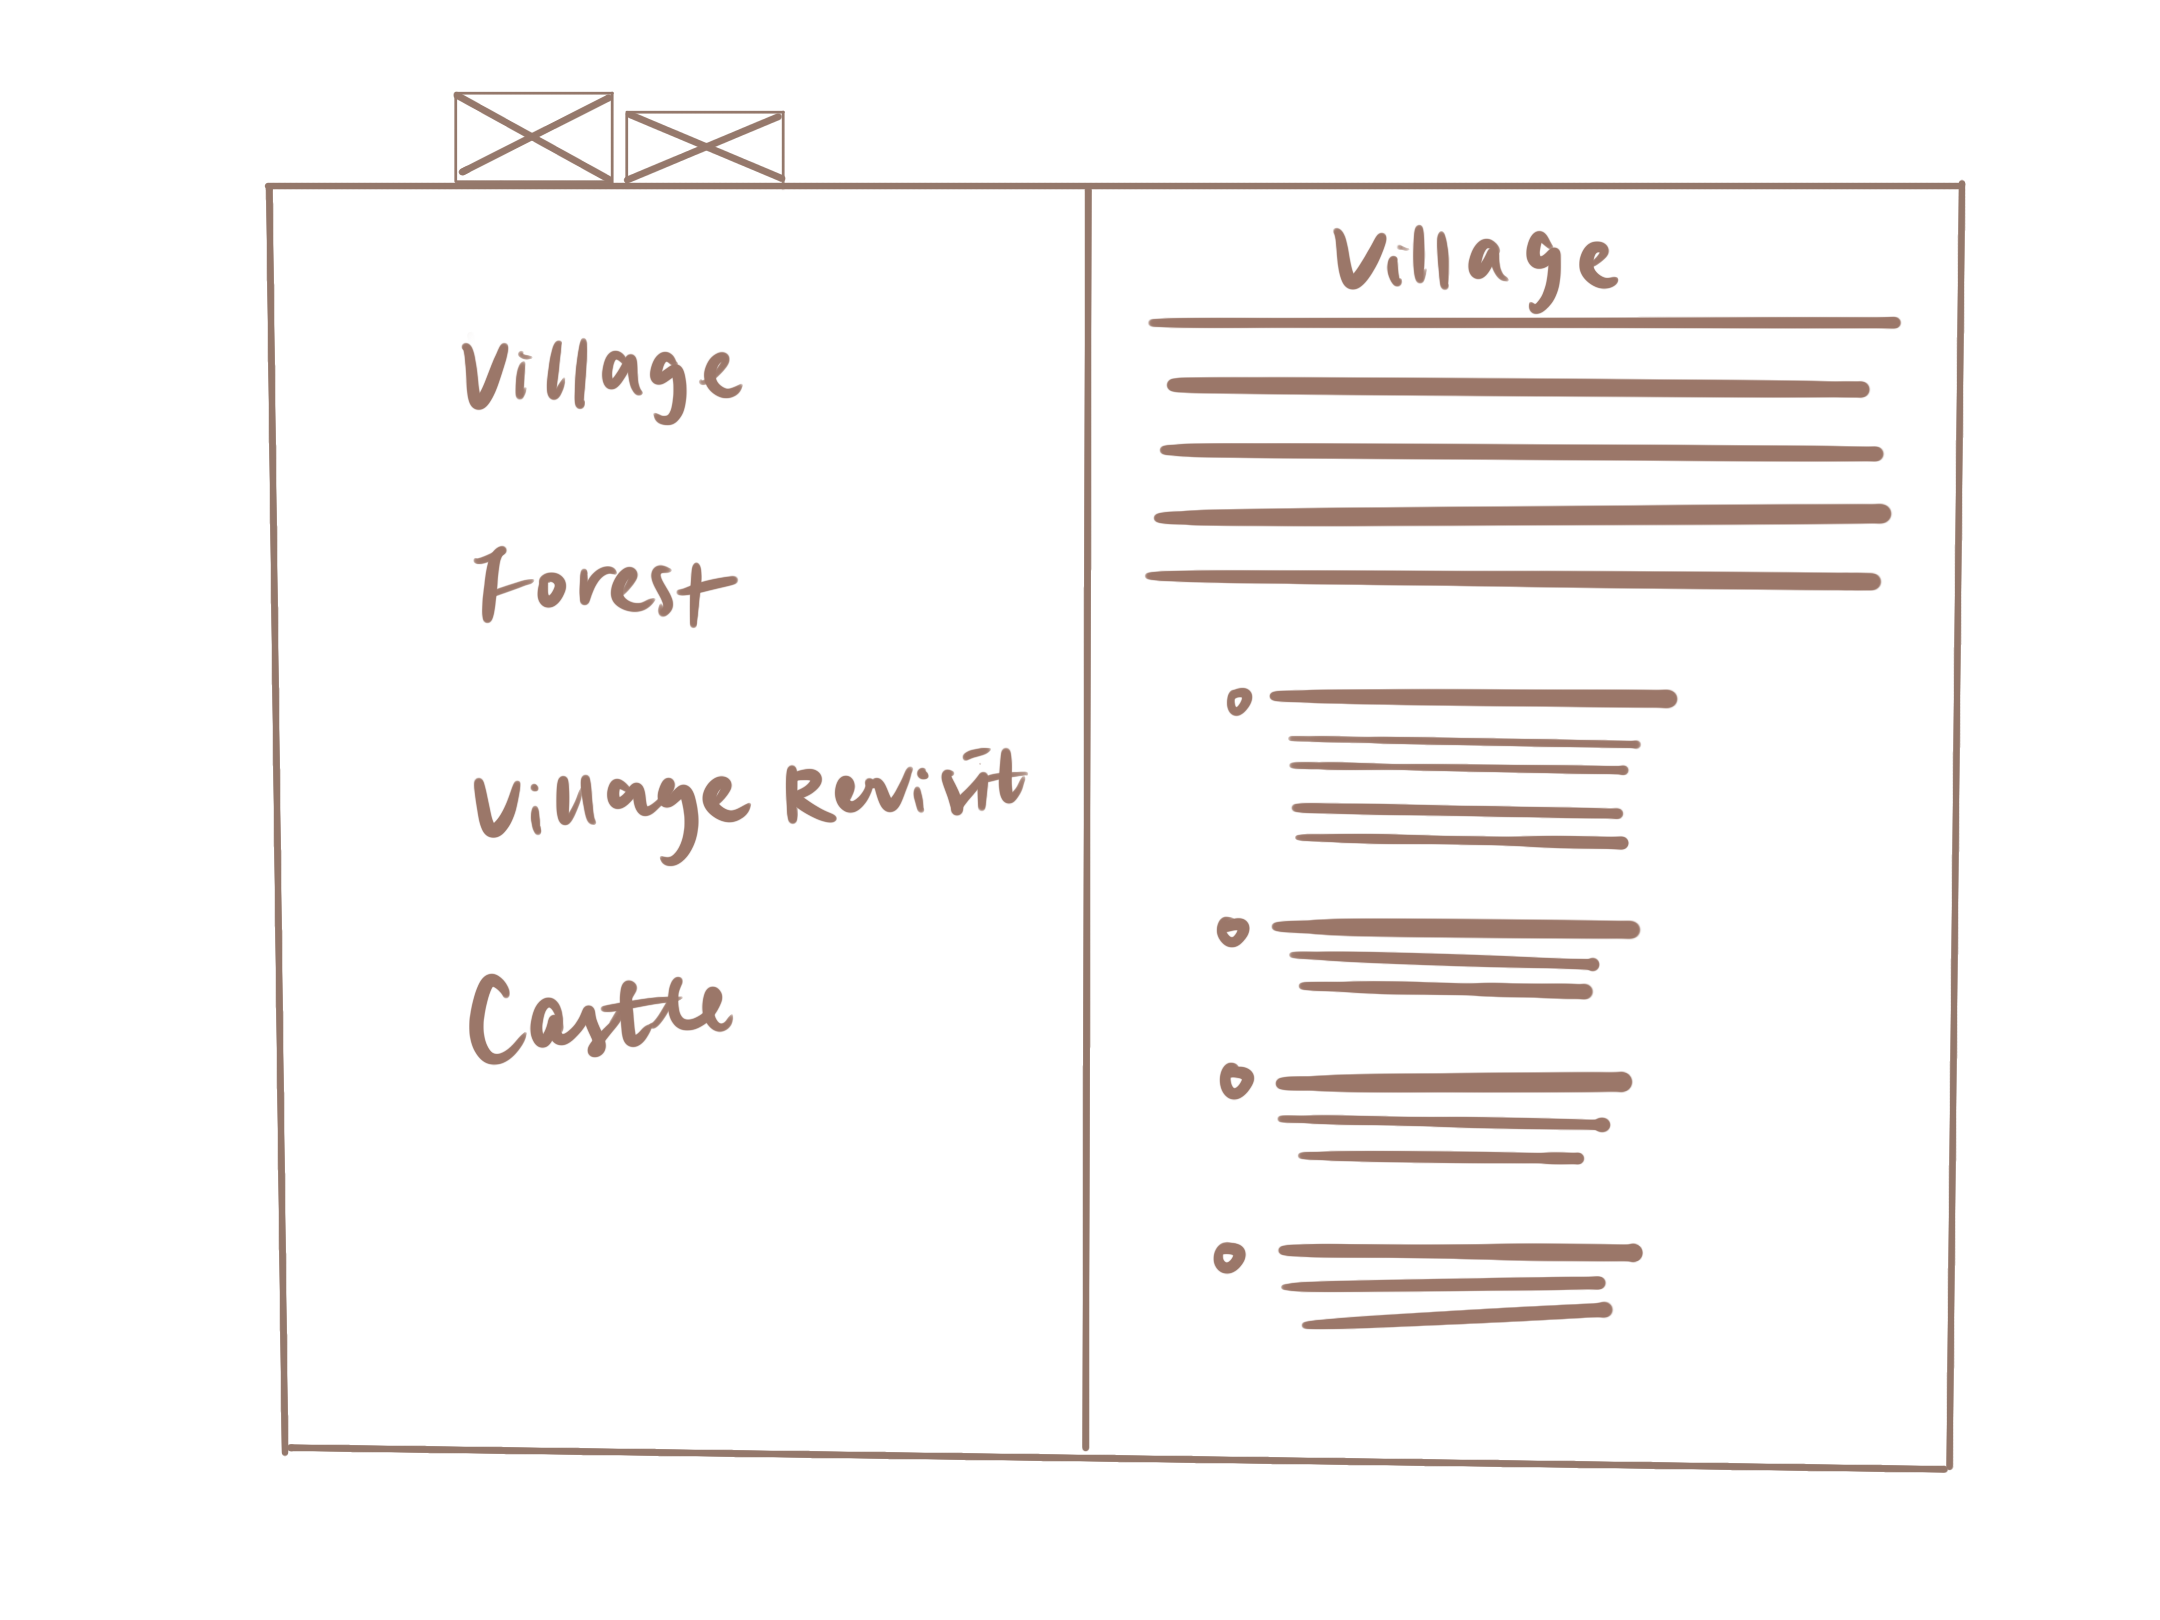 Village
Forest
Village Revisit
Castle
Village